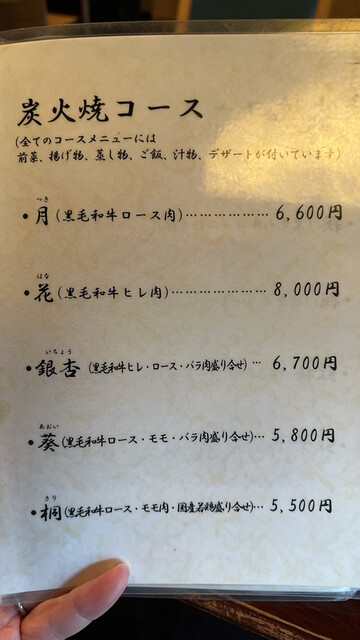 炭火焼コース
(全てのコースメニューには
前菜、揚げ物、蒸し物、ご飯、汁物、デザートが付いています)
つき
・月(黒毛和牛ロース肉)………………6,600円
はな
・花(黒毛和牛ヒレ肉)…………………8,000円
いちょう
・銀杏(黒毛和牛ヒレ・ロース・バラ肉盛り合せ)…6,700円
あおい
・葵(黒毛和牛ロース・モモ・バラ肉盛り合せ)…5,800円
きり
・桐(黒毛和牛ロース・モモ肉・国産若鶏盛り合せ)…5,500円